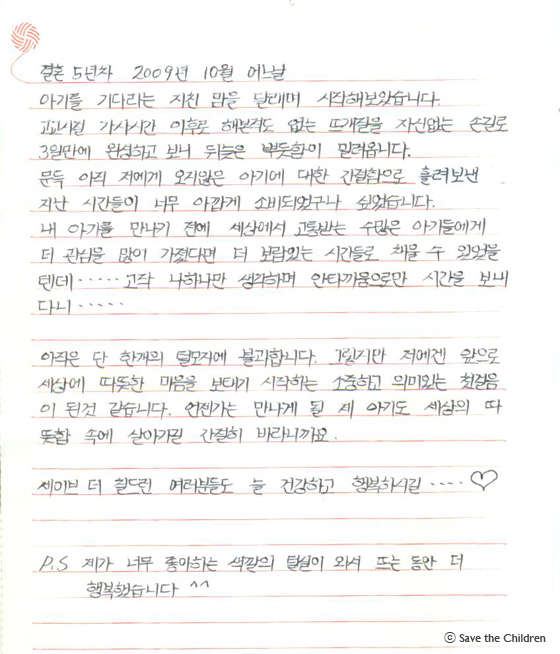 결혼 5년차 2009년 10월 어느날
아기를 기다리는 지친 맘을 달래며 시작해보았습니다.
고교시절 가사시간 이후로 해본적도 없는 뜨개질을 자신없는 손길로
3일만에 완성하고 보니 뒤늦은 뿌듯함이 밀려옵니다.
문득 아직 저에게 오지않은 아기에 대한 간절함으로 흘려보낸
지난 시간들이 너무 아깝게 소비되었구나 싶었습니다.
내 아기를 만나기 전에 세상에서 고통받는 수많은 아기들에게
더 관심을 많이 가졌다면 더 보람있는 시간들로 채울 수 있었을
텐데····· 고작 나하나만 생각하며 안타까움으로만 시간을 보내
다니·····
아직은 단 한개의 털모자에 불과합니다. 그렇지만 저에겐 앞으로
세상에 따뜻한 마음을 보태기 시작하는 소중하고 의미있는 첫걸음
이 된것 같습니다. 언젠가는 만나게 될 제 아기도 세상의 따
뜻함 속에 살아가길 간절히 바라니까요.
세이브 더 칠드런 여러분들도 늘 건강하고 행복하시길 ···· ♡
P.S 제가 너무 좋아하는 색깔의 털실이 와서 뜨는 동안 더
행복했습니다 ^^
ⓒ Save the Children